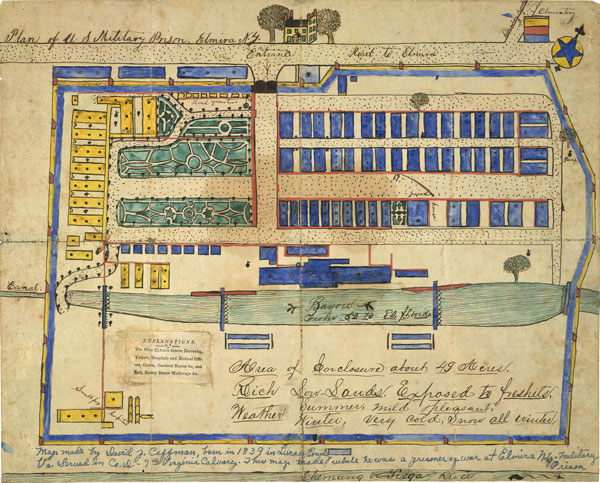 Plan of U S Military Prison, Elmira N.Y.
Observatory
Entrance
Road to Elmira
Canal.
Bayou
EXPLANATIONS.
The Blue Colours denote Barracks,
Yellow, Hospitals and Medical Offi-
ces, Green, Gardens Bayou &c, and
Red, Sentry Boxes Walkways &c.
Area of Enclosure about 43 Acres.
Rich Low Lands, Exposed to freshets,
Weather Summer, mild & pleasant,
Winter, Very Cold, Snow all winter
Map made by David J. Coffman, born in 1839 in
Va. Served in Co. - 7th Virginia Calvary. This map made while he was a prisoner of war at Elmira N.Y. Military
Prison
Chemung River